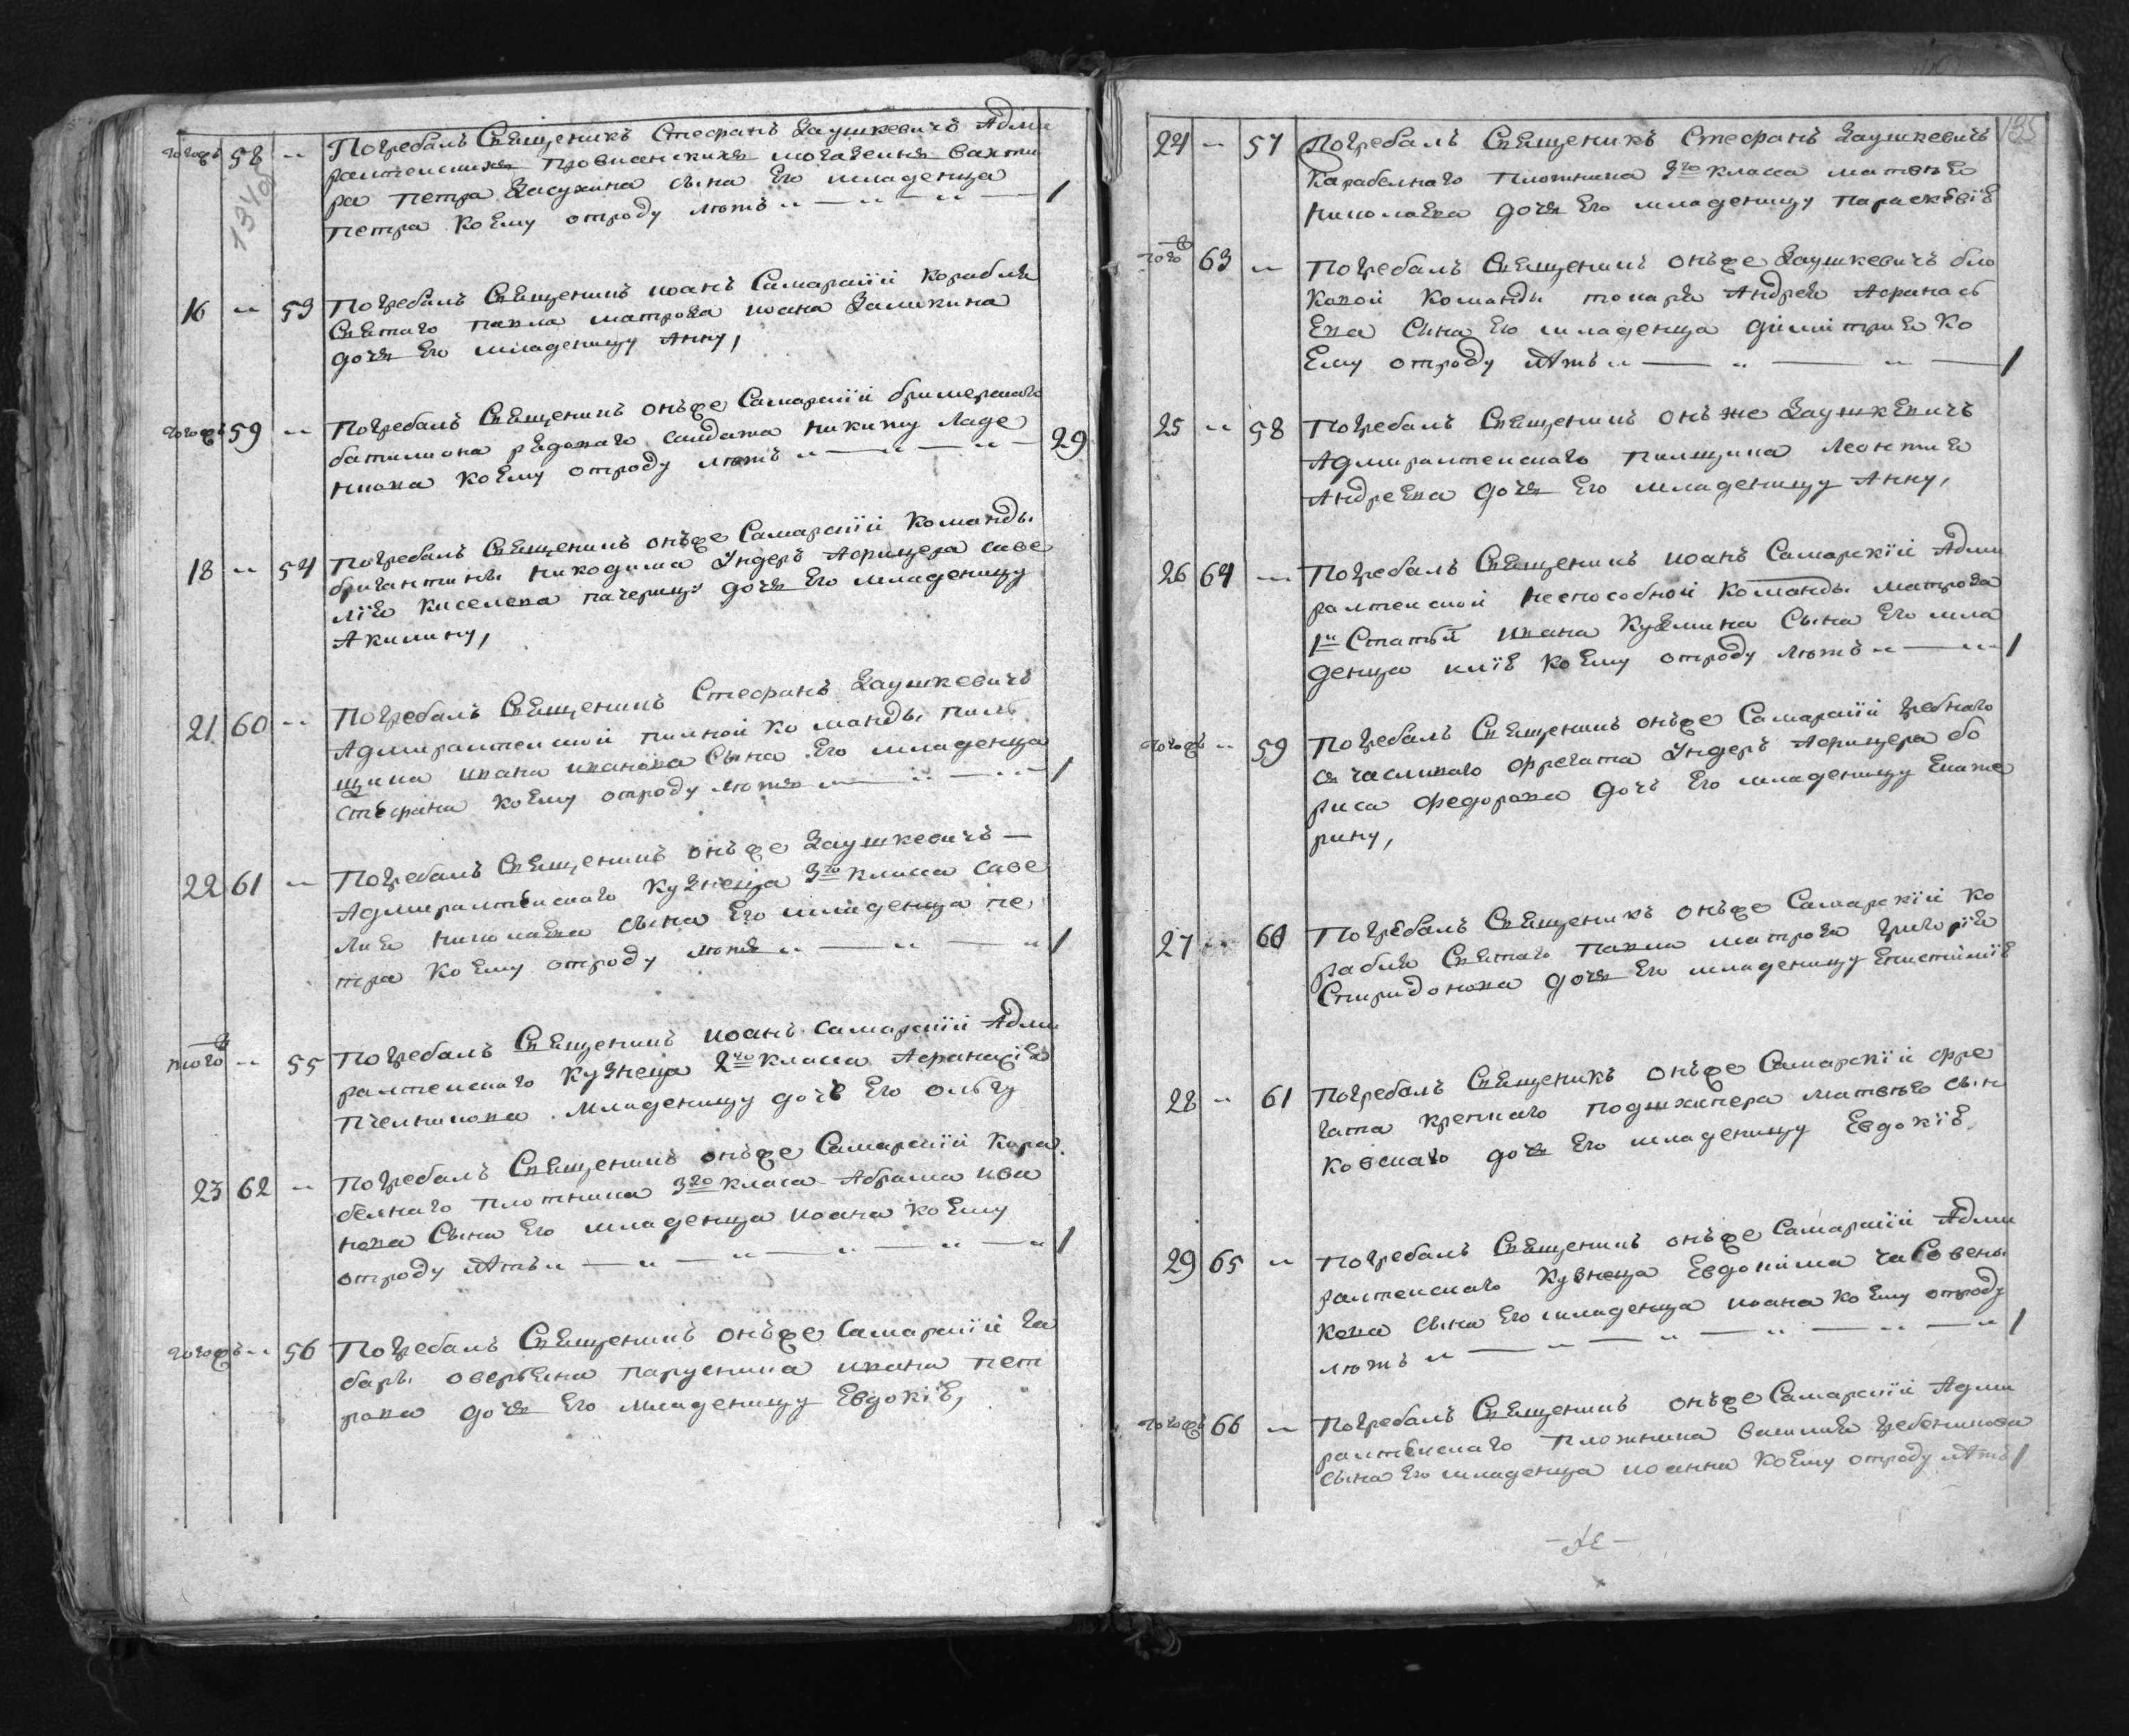 тогож 58 — Погребалъ Священикъ Стефанъ Заушкевичъ Адми
ралтеискихъ провианскихъ магазеинъ вахти
ра петра Засухина сына Его младенца
петра коему отроду лютъ — 1
16 — 53 Погребалъ Священикъ иоанъ Самарскїй корабля
Святаго павла матроза иоана Замикина
дочь Его младеницу Анну,
тогож 59 — Погребалъ Священикъ онъже Самарскїй
баталиона рядоваго салдата никиту Ладе
никова коему отроду лютъ — 29
18 — 54 Погребалъ Священикъ онъже Самарскїй команды
бригантины никодима Ундеръ Афицера саве
лїя киселева дочь Его младеницу
Акилину,
21 60 — Погребалъ Священикъ Стефанъ Заушкевичъ
Адмиралтеиской пилной команды пиль
щика ивана иванова Сына Его младенца
стефана коему отроду лютъ — 1
22 61 — Погребалъ Священикъ онъже Заушкевичъ —
Адмиралтеискаго кузнеца 3го класса саве
лия николаева сына Его младенца пе
тра коему отроду лютъ — 1
того ж — 55 Погребалъ Священикъ иоанъ Самарскїй Адми
ралтеискаго кузнеца 2го класса Афанасїя
пчельникова младеницу дочь Его ольгу
23 62 — Погребалъ Священикъ онъже Самарскїй кора
белнаго плотника 3го класа Абрама ива
нова Сына Его младенца иоана коему
отроду лѣтъ — 1
тогож — 56 Погребалъ Священикъ онъже Самарскїй га
бары оверъяна парусника ивана пет
рова дочь Его младеницу Евдокїѣ,
133
24 — 57 Погребалъ Священикъ Стефанъ Заушкевичъ
карабелнаго плотника 3го класса матвѣя
николаева дочь Его младеницу параскѣвїѣ
того ж 63 — Погребалъ Священикъ онъже Заушкевичъ бло
ковой команды токаря Андрея Афанась
Ева Сына Его младенца димитрия ко
Ему отроду лѣтъ — 1
25 — 58 Погребалъ Священикъ онъ же Заушкевичъ
Адмиралтеискаго пилщика Леонтия
Андреева дочь Его младеницу Анну,
26 64 — Погребалъ Священикъ иоанъ Самарскїй Адми
ралтеиской неспособной команды матроза
1й Статьй ивана Кузмина Сына Его мла
денца илїѣ коему отроду лютъ — 1
тогож — 59 Погребалъ Священикъ онъже Самарскїй гребнаго
счасливаго фрегата Ундеръ Афицера бо
риса федорова дочь Его младеницу Екате
рину,
27 — 60 Погребалъ Священикъ онъже Самарскїй ко
рабля Святаго павла матроза григорїя
Спиридонова дочь Его младеницу
28 — 61 Погребалъ Священикъ онъже Самарскїй фре
гата крепкаго подшхипера матвѣя сын
ковскаго дочь Его младеницу Евдокїѣ.
29 65 — Погребалъ Священикъ онъже Самарскїй Адми
ралтеискаго кузнеца Евдокима часовени
кова сына Его младенца иоана коему отроду
лютъ — 1
тогож 66 — Погребалъ Священикъ онъже Самарскїй Адми
ралтеискаго плотника василия гребеникова
сына Его младенца иоанна коему отроду лѣтъ 1